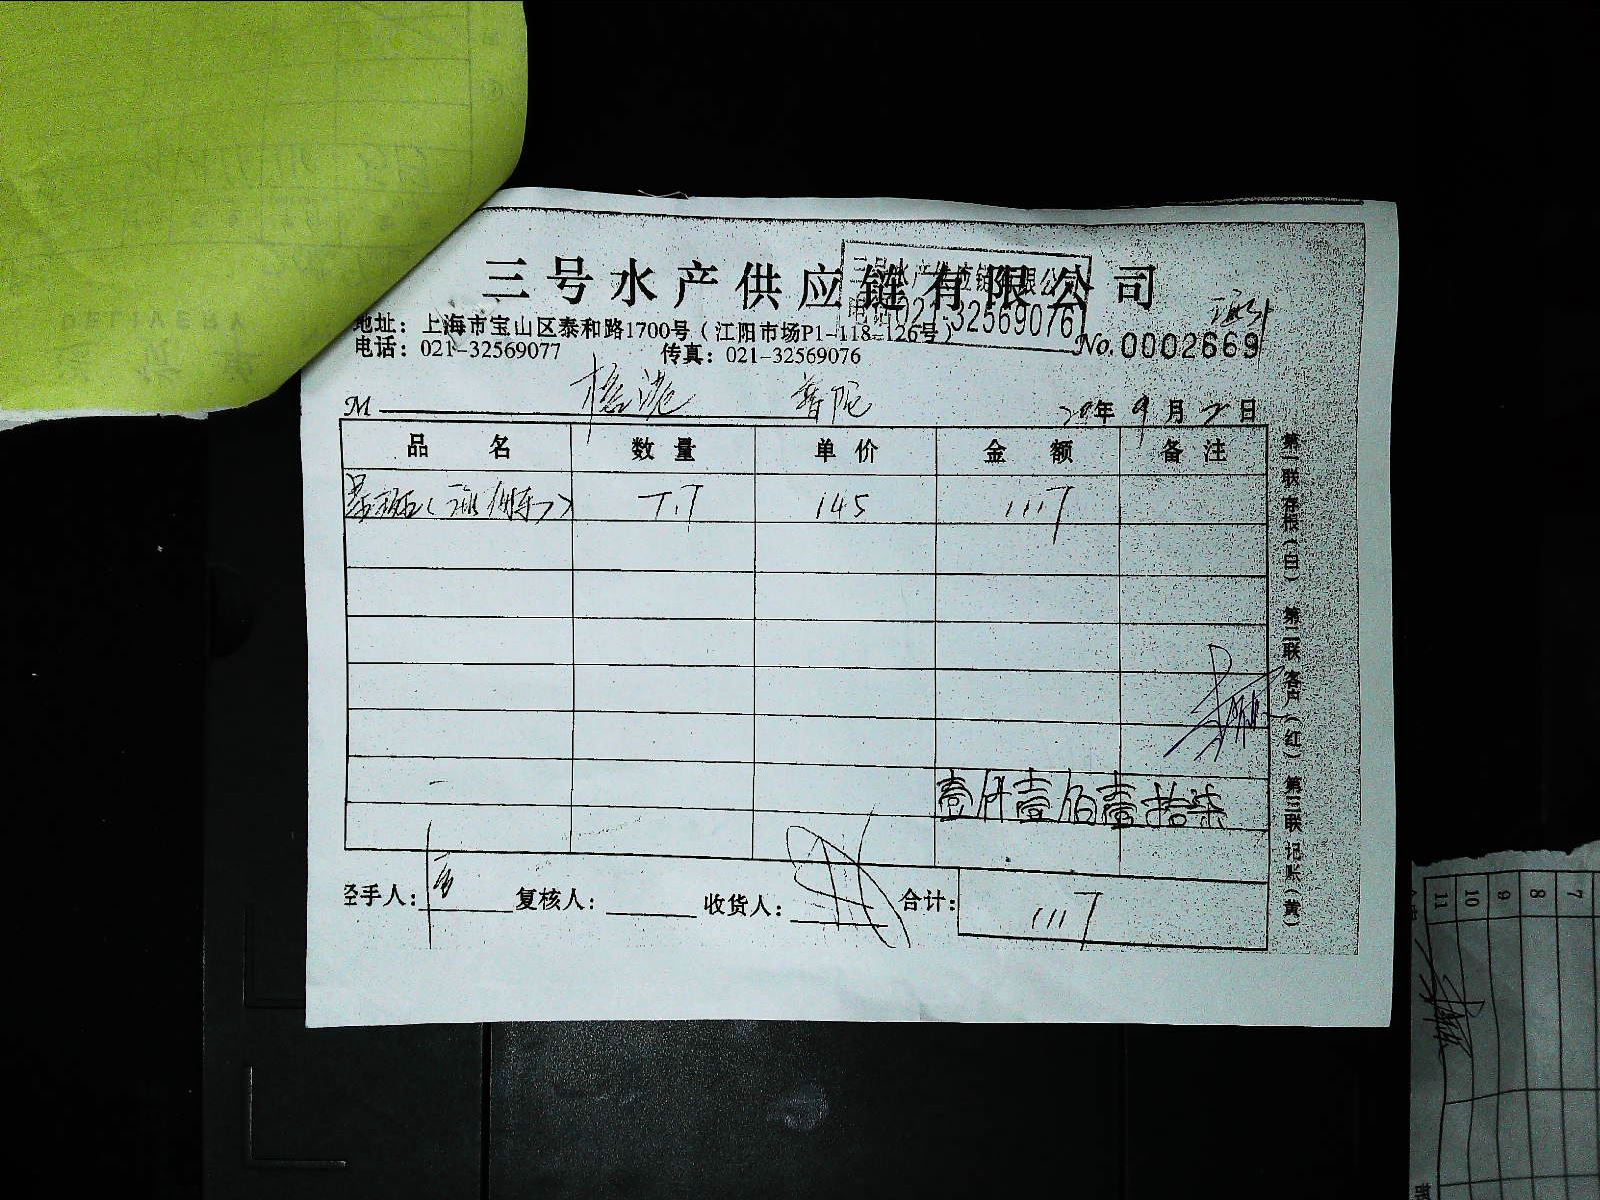 三号水产供应链有限公司
三号水产供应链有限公司
电话:021-32569076
地址：上海市宝山区泰和路1700号（江阳市场P1-118-126号）
No.0002669
电话：021-32569077 传真：021-32569076
M 普陀 年 9 月 日
品名 数量 单价 金额 备注
7.7 145 1117
壹仟壹佰壹拾柒
经手人： 复核人： 收货人： 合计： 1117
第一联 存根（白） 第二联 客户（红） 第三联 记账（黄）
7
8
9
10
11